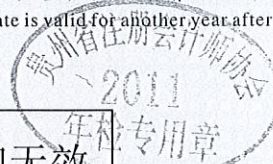 ate is valid for another year after
贵州省注册会计师协会
2011
年检专用章
无效